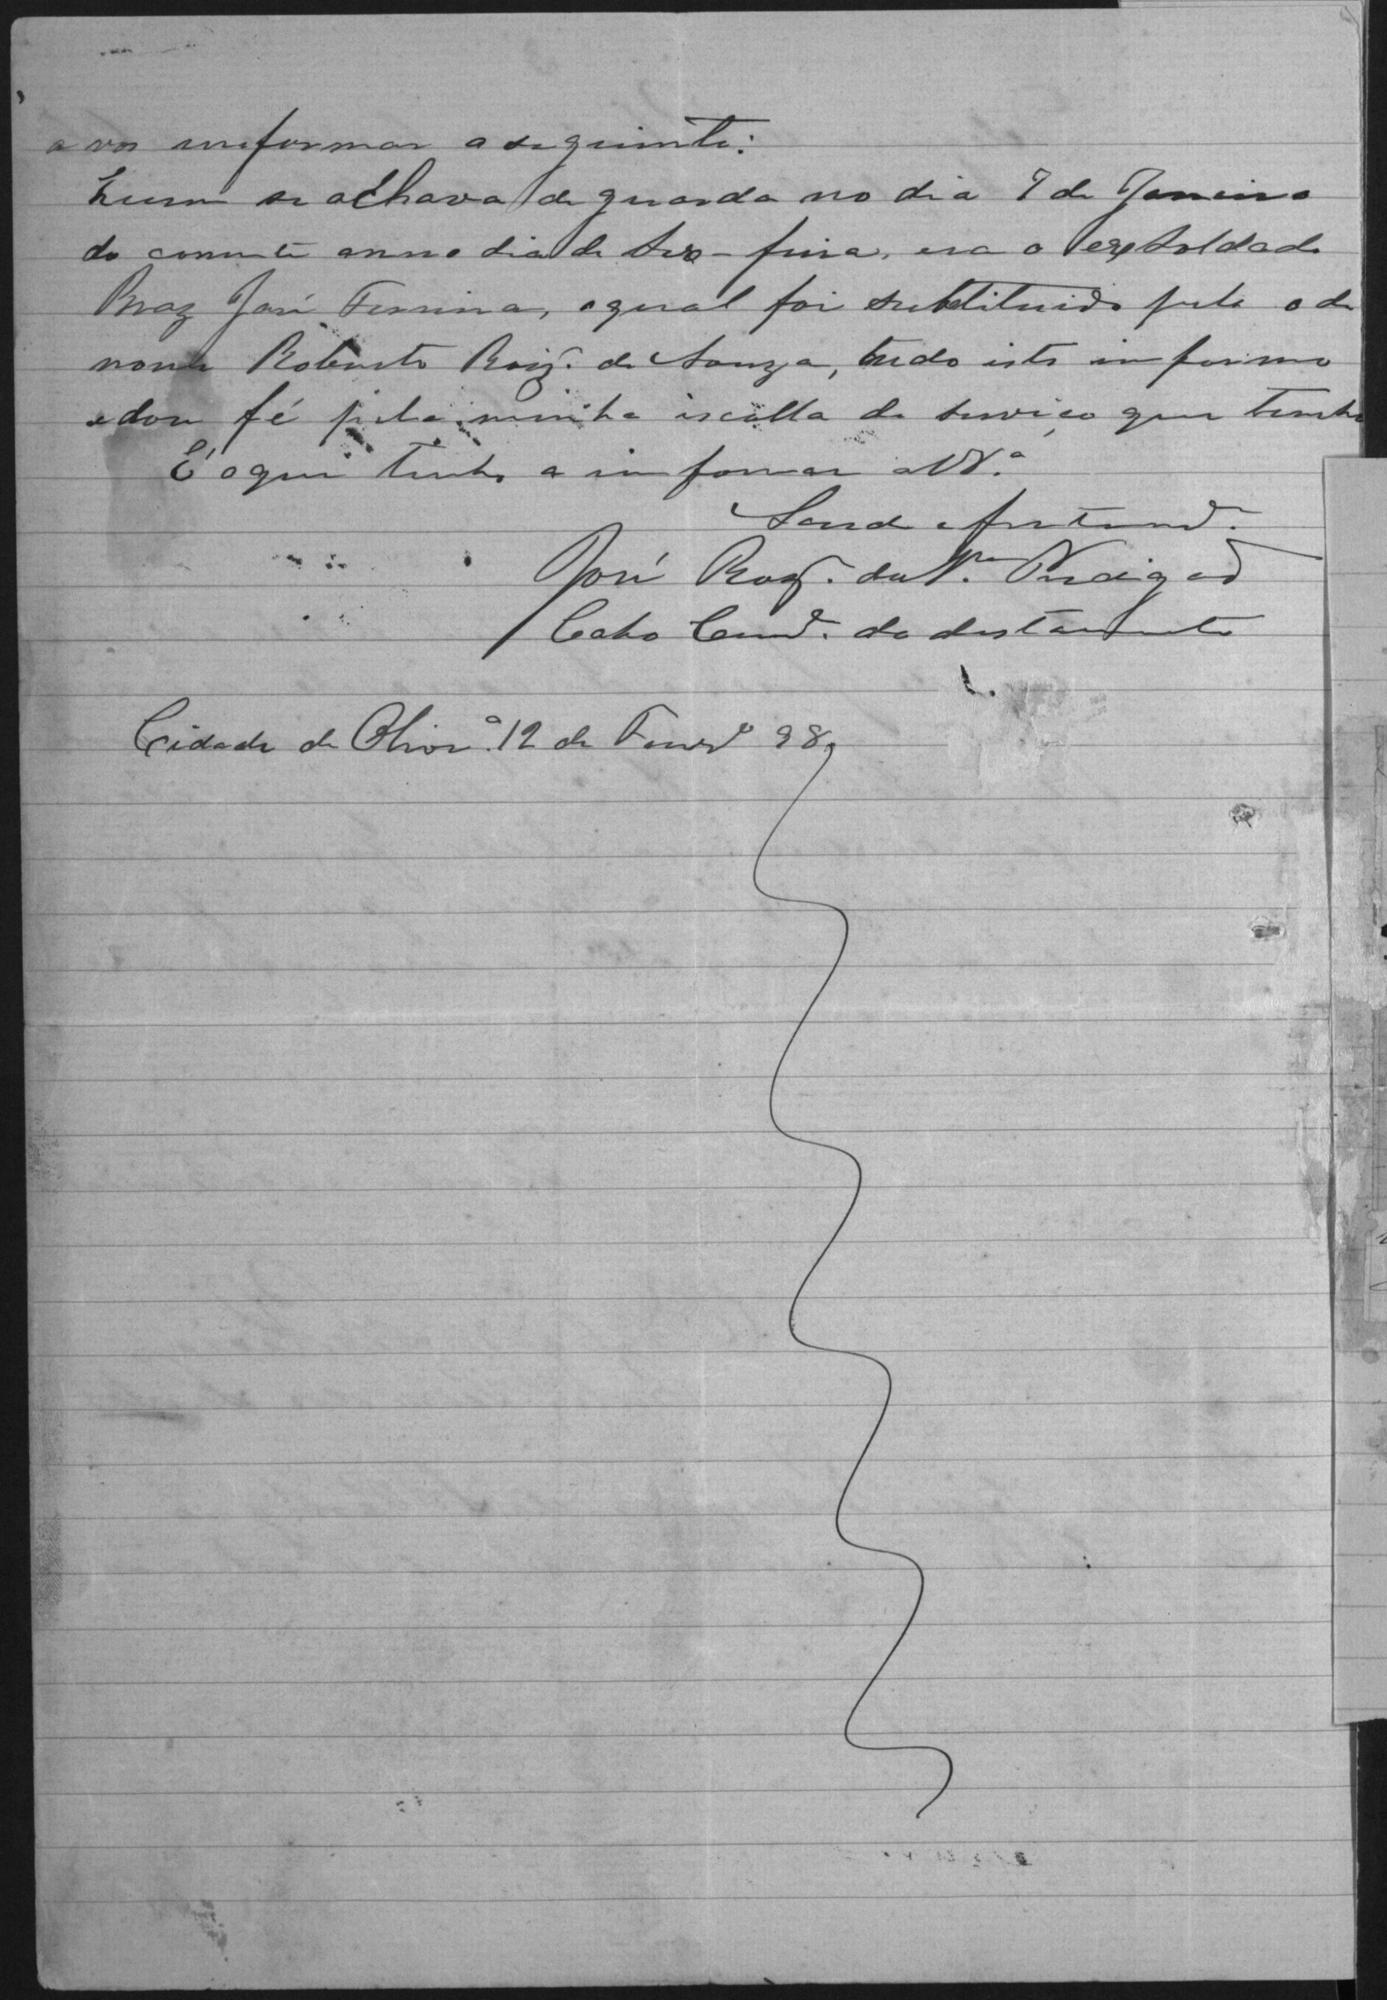 a vos imformar a seguinte:
Quem se achava de guarda no dia 7 de Janeiro
do corrente anno dia de Sex-feira, era o ex soldado
Braz José Ferreira, o qual foi substituido pelo o de
nome Roberto Roiz. de Souza, tudo isto imformo
e dou fé pela minha iscalla do serviço que tenho
É o que tenho a imformar a VS.ª
Saude e fraternid.
José Roiz. da
Cabo Com.d. do destacamento
Cidade de Olivr.ª 12 de Fever.º 98,